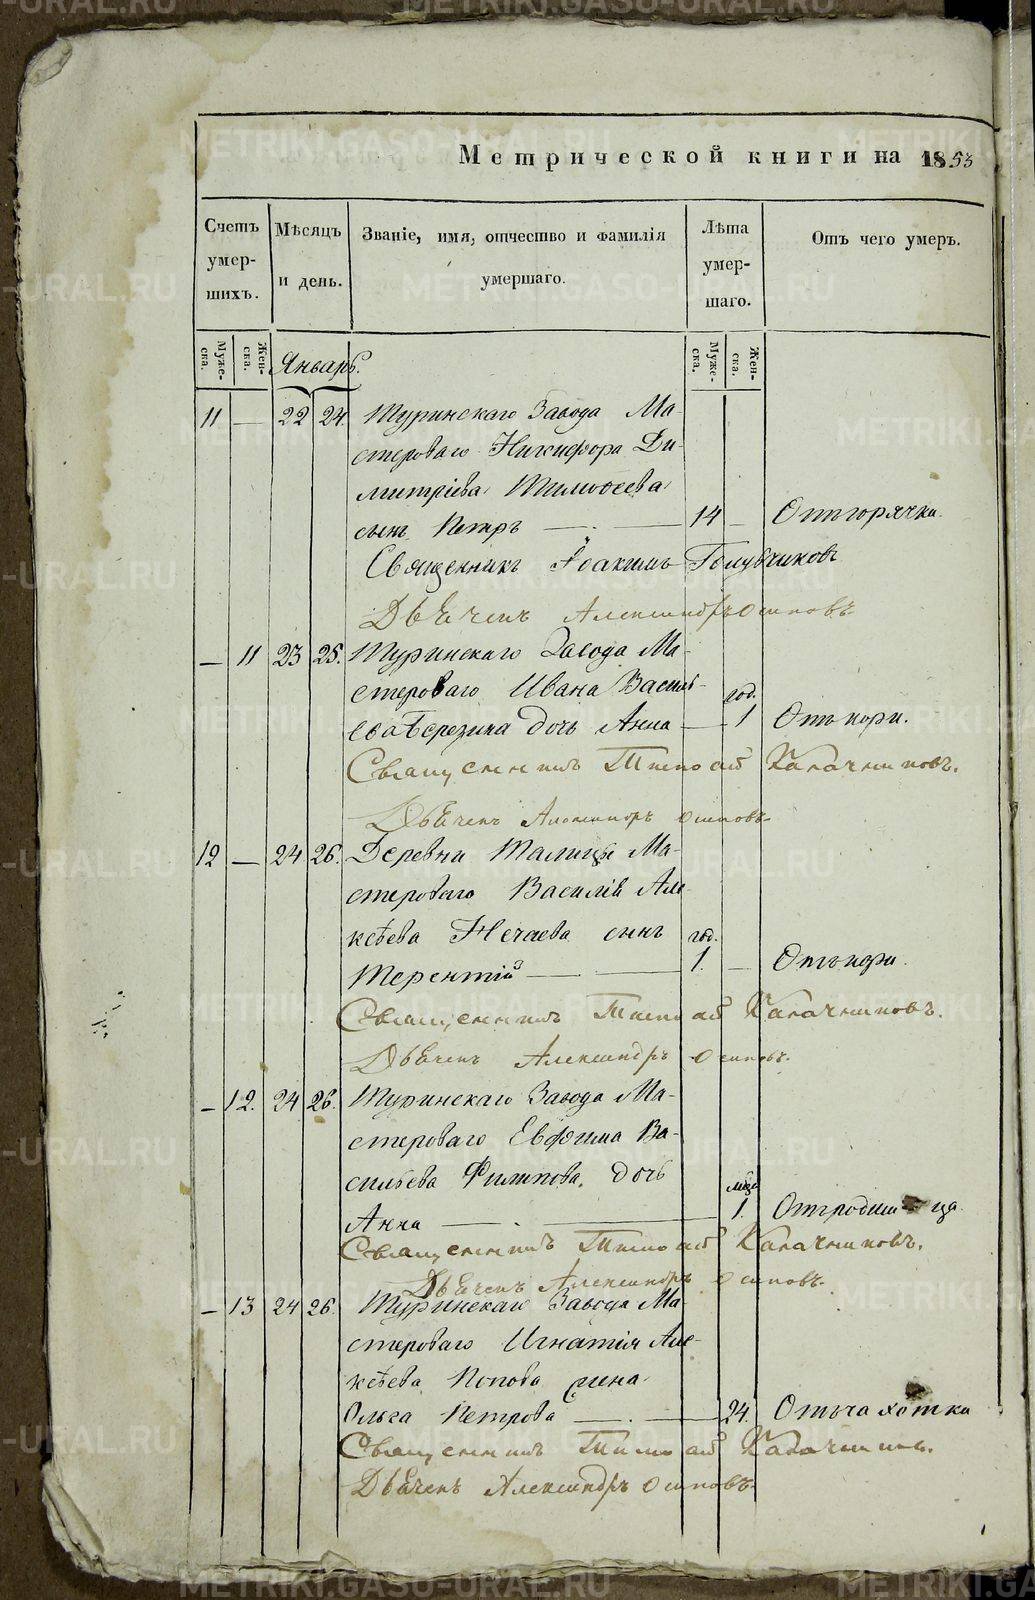 Метрической книги на 1853
Счетъ умер-шихъ.
Мѣсяцъ и день.
Званіе, имя, отчество и фамилія умершаго.
Лѣта умер-шаго.
Отъ чего умеръ.
Муже-ска.
Жен-ска.
Январь.
Муже-ска.
Жен-ска.
11 — 22 24. Туринскаго Завода Ма-
стероваго Никифора Ди-
митріева Тимоѳеева
сынъ Петръ — 14 — Отъ горячки.
Священникъ Іоакимъ Голубчиковъ
Дьячекъ Александръ Осиповъ
— 11 23 25. Туринскаго Завода Ма-
стероваго Ивана Василь-
ева Березина дочь Анна — год. 1 Отъ кори.
Священникъ Тимоѳей Калачниковъ.
Дьячекъ Александръ Осиповъ.
12 — 24 26. Деревни Талицы Ма-
стероваго Василія Але-
ксѣева Нечаева сынъ год.
Терентій — 1. — Отъ кори.
Священникъ Тимоѳей Калачниковъ.
Дьячекъ Александръ Осиповъ.
— 12. 24 26. Туринскаго Завода Ма-
стероваго Евфима Ва-
сильева Филипова. дочь
Анна — 1. Отъ родимца
Священникъ Тимоѳей Калачниковъ.
Дьячекъ Александръ Осиповъ.
— 13 24 26. Туринскаго Завода Ма-
стероваго Игнатія Але-
ксѣева Попова жена
Ольга Петрова — 24. Отъ чахотки
Священникъ Тимоѳей Калачниковъ.
Дьячекъ Александръ Осиповъ.
METRIKI.GASO-URAL.RU